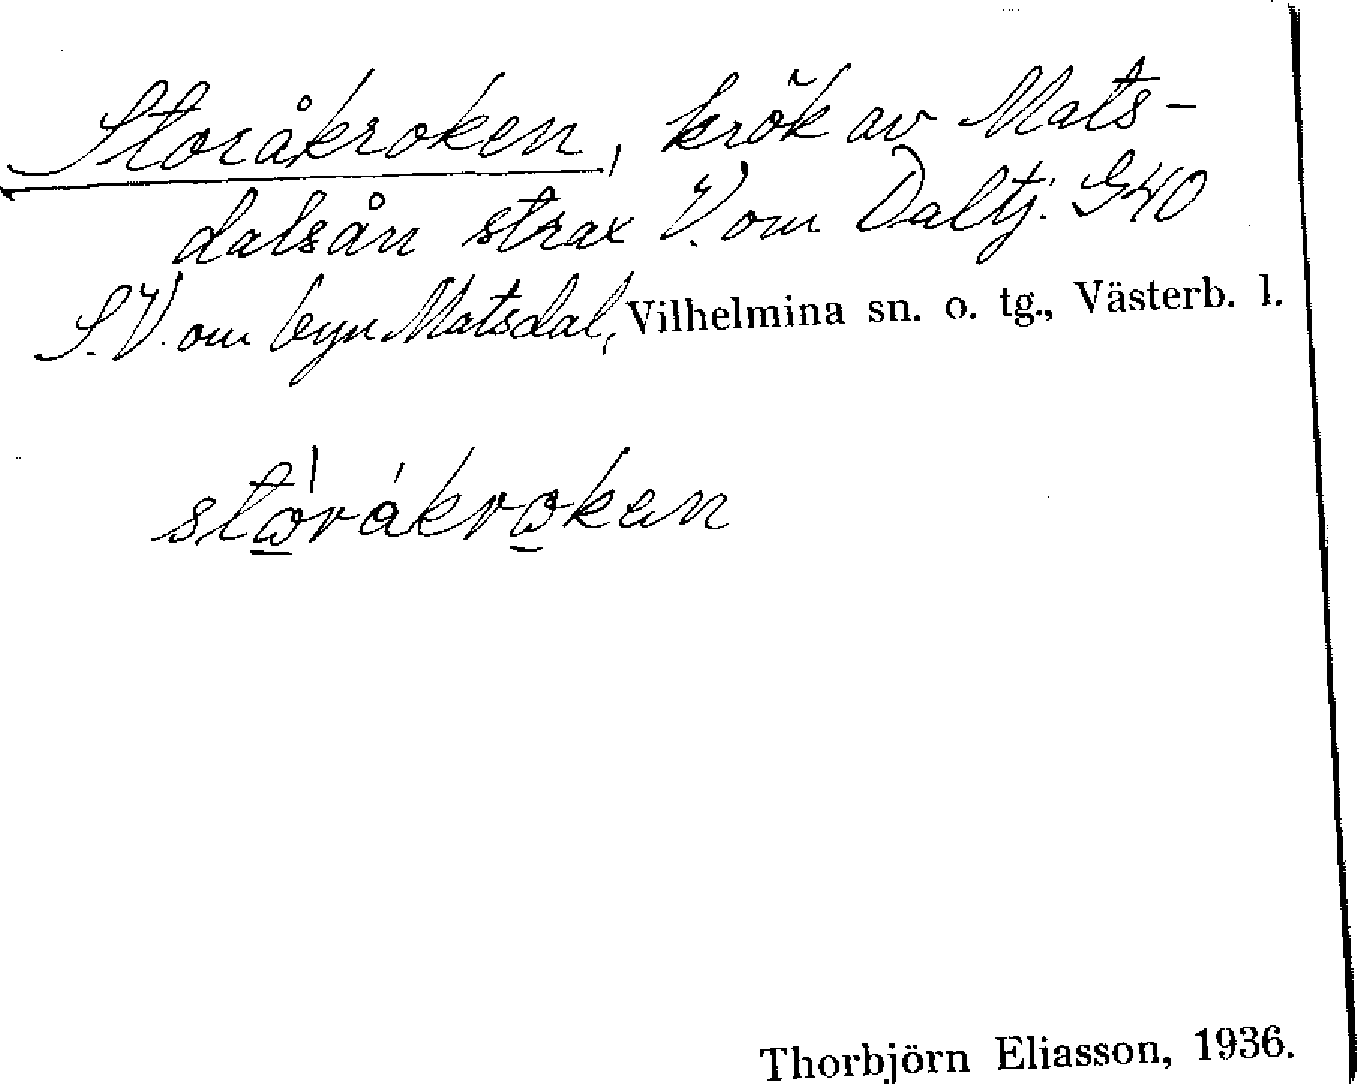 Storåkroken, krök av Mats-
dalsån strax V. om Daltj. G40
S.V. om byn Matsdal, Vilhelmina sn. o. tg., Västerb. l.
storåkroken
Thorbjörn Eliasson, 1936.